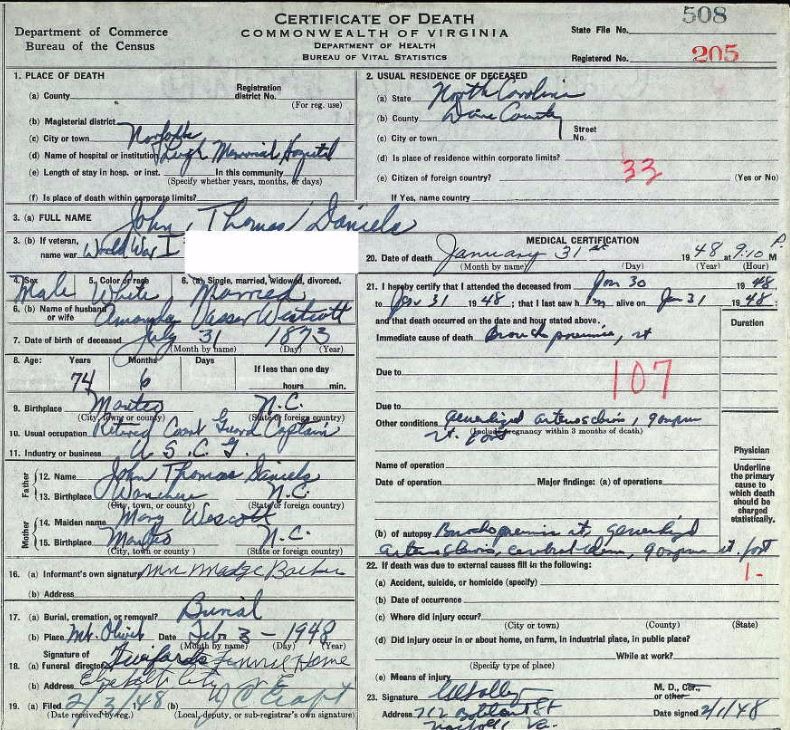 Department of Commerce
Bureau of the Census
CERTIFICATE OF DEATH
COMMONWEALTH OF VIRGINIA
DEPARTMENT OF HEALTH
BUREAU OF VITAL STATISTICS
508
State File No.
Registered No. 205
1. PLACE OF DEATH
(a) County Registration district No. (For reg. use)
(b) Magisterial district
(c) City or town Norfolk
(d) Name of hospital or institution Leigh Memorial Hospital
(e) Length of stay in hosp. or inst. In this community
(Specify whether years, months, or days)
(f) Is place of death within corporate limits?
2. USUAL RESIDENCE OF DECEASED
(a) State North Carolina
(b) County Dare County
(c) City or town Street No.
(d) Is place of residence within corporate limits?
(e) Citizen of foreign country? 33 (Yes or No)
If Yes, name country
3. (a) FULL NAME John Thomas Daniels
3. (b) If veteran, name war World War I
4. Sex 5. Color or race 6. (a) Single, married, widowed, divorced.
Male White Married
6. (b) Name of husband or wife Westcott
7. Date of birth of deceased July 31 1873
(Month by name) (Day) (Year)
8. Age: Years Months Days If less than one day
74 6 hours min.
9. Birthplace Manteo N.C.
(City, town or county) (State or foreign country)
10. Usual occupation Retired Coast Guard Captain
11. Industry or business U.S.C.G.
Father
12. Name John Thomas Daniels
13. Birthplace Wanchese N.C.
(City, town, or county) (State or foreign country)
Mother
14. Maiden name Mary Wescott
15. Birthplace Manteo N.C.
(City, town or county) (State or foreign country)
16. (a) Informant's own signature Mrs Madge
(b) Address
17. (a) Burial, cremation, or removal? Burial
(b) Place Mt. Olivet Date Feb 3 - 1948
(Month by name) (Day) (Year)
18. Signature of (a) Funeral director Twifords Funeral Home
(b) Address Elizabeth City N.C.
19. (a) Filed 2/3/48 (b)
(Date received by reg.) (Local, deputy, or sub-registrar's own signature)
MEDICAL CERTIFICATION
20. Date of death January 31st 1948 at 9:10 P. M
(Month by name) (Day) (Year) (Hour)
21. I hereby certify that I attended the deceased from Jan 30 1948
to Jan 31 1948; that I last saw him alive on Jan 31 1948;
and that death occurred on the date and hour stated above. Duration
Immediate cause of death Bronchopneumonia, rt
Due to
107
Due to
Other conditions Generalized arteriosclerosis, gangrene
rt. foot
(Include pregnancy within 3 months of death)
Name of operation
Date of operation Major findings: (a) of operations
Physician
Underline the primary cause to which death should be charged statistically.
(b) of autopsy Bronchopneumonia rt, generalized
arteriosclerosis, cerebral edema, gangrene rt. foot
22. If death was due to external causes fill in the following:
1-
(a) Accident, suicide, or homicide (specify)
(b) Date of occurrence
(c) Where did injury occur?
(City or town) (County) (State)
(d) Did injury occur in or about home, on farm, in industrial place, in public place?
While at work?
(Specify type of place)
(e) Means of injury
23. Signature M. D., Cor., or other
Address 712 St Date signed 2/1/48
Norfolk Va.